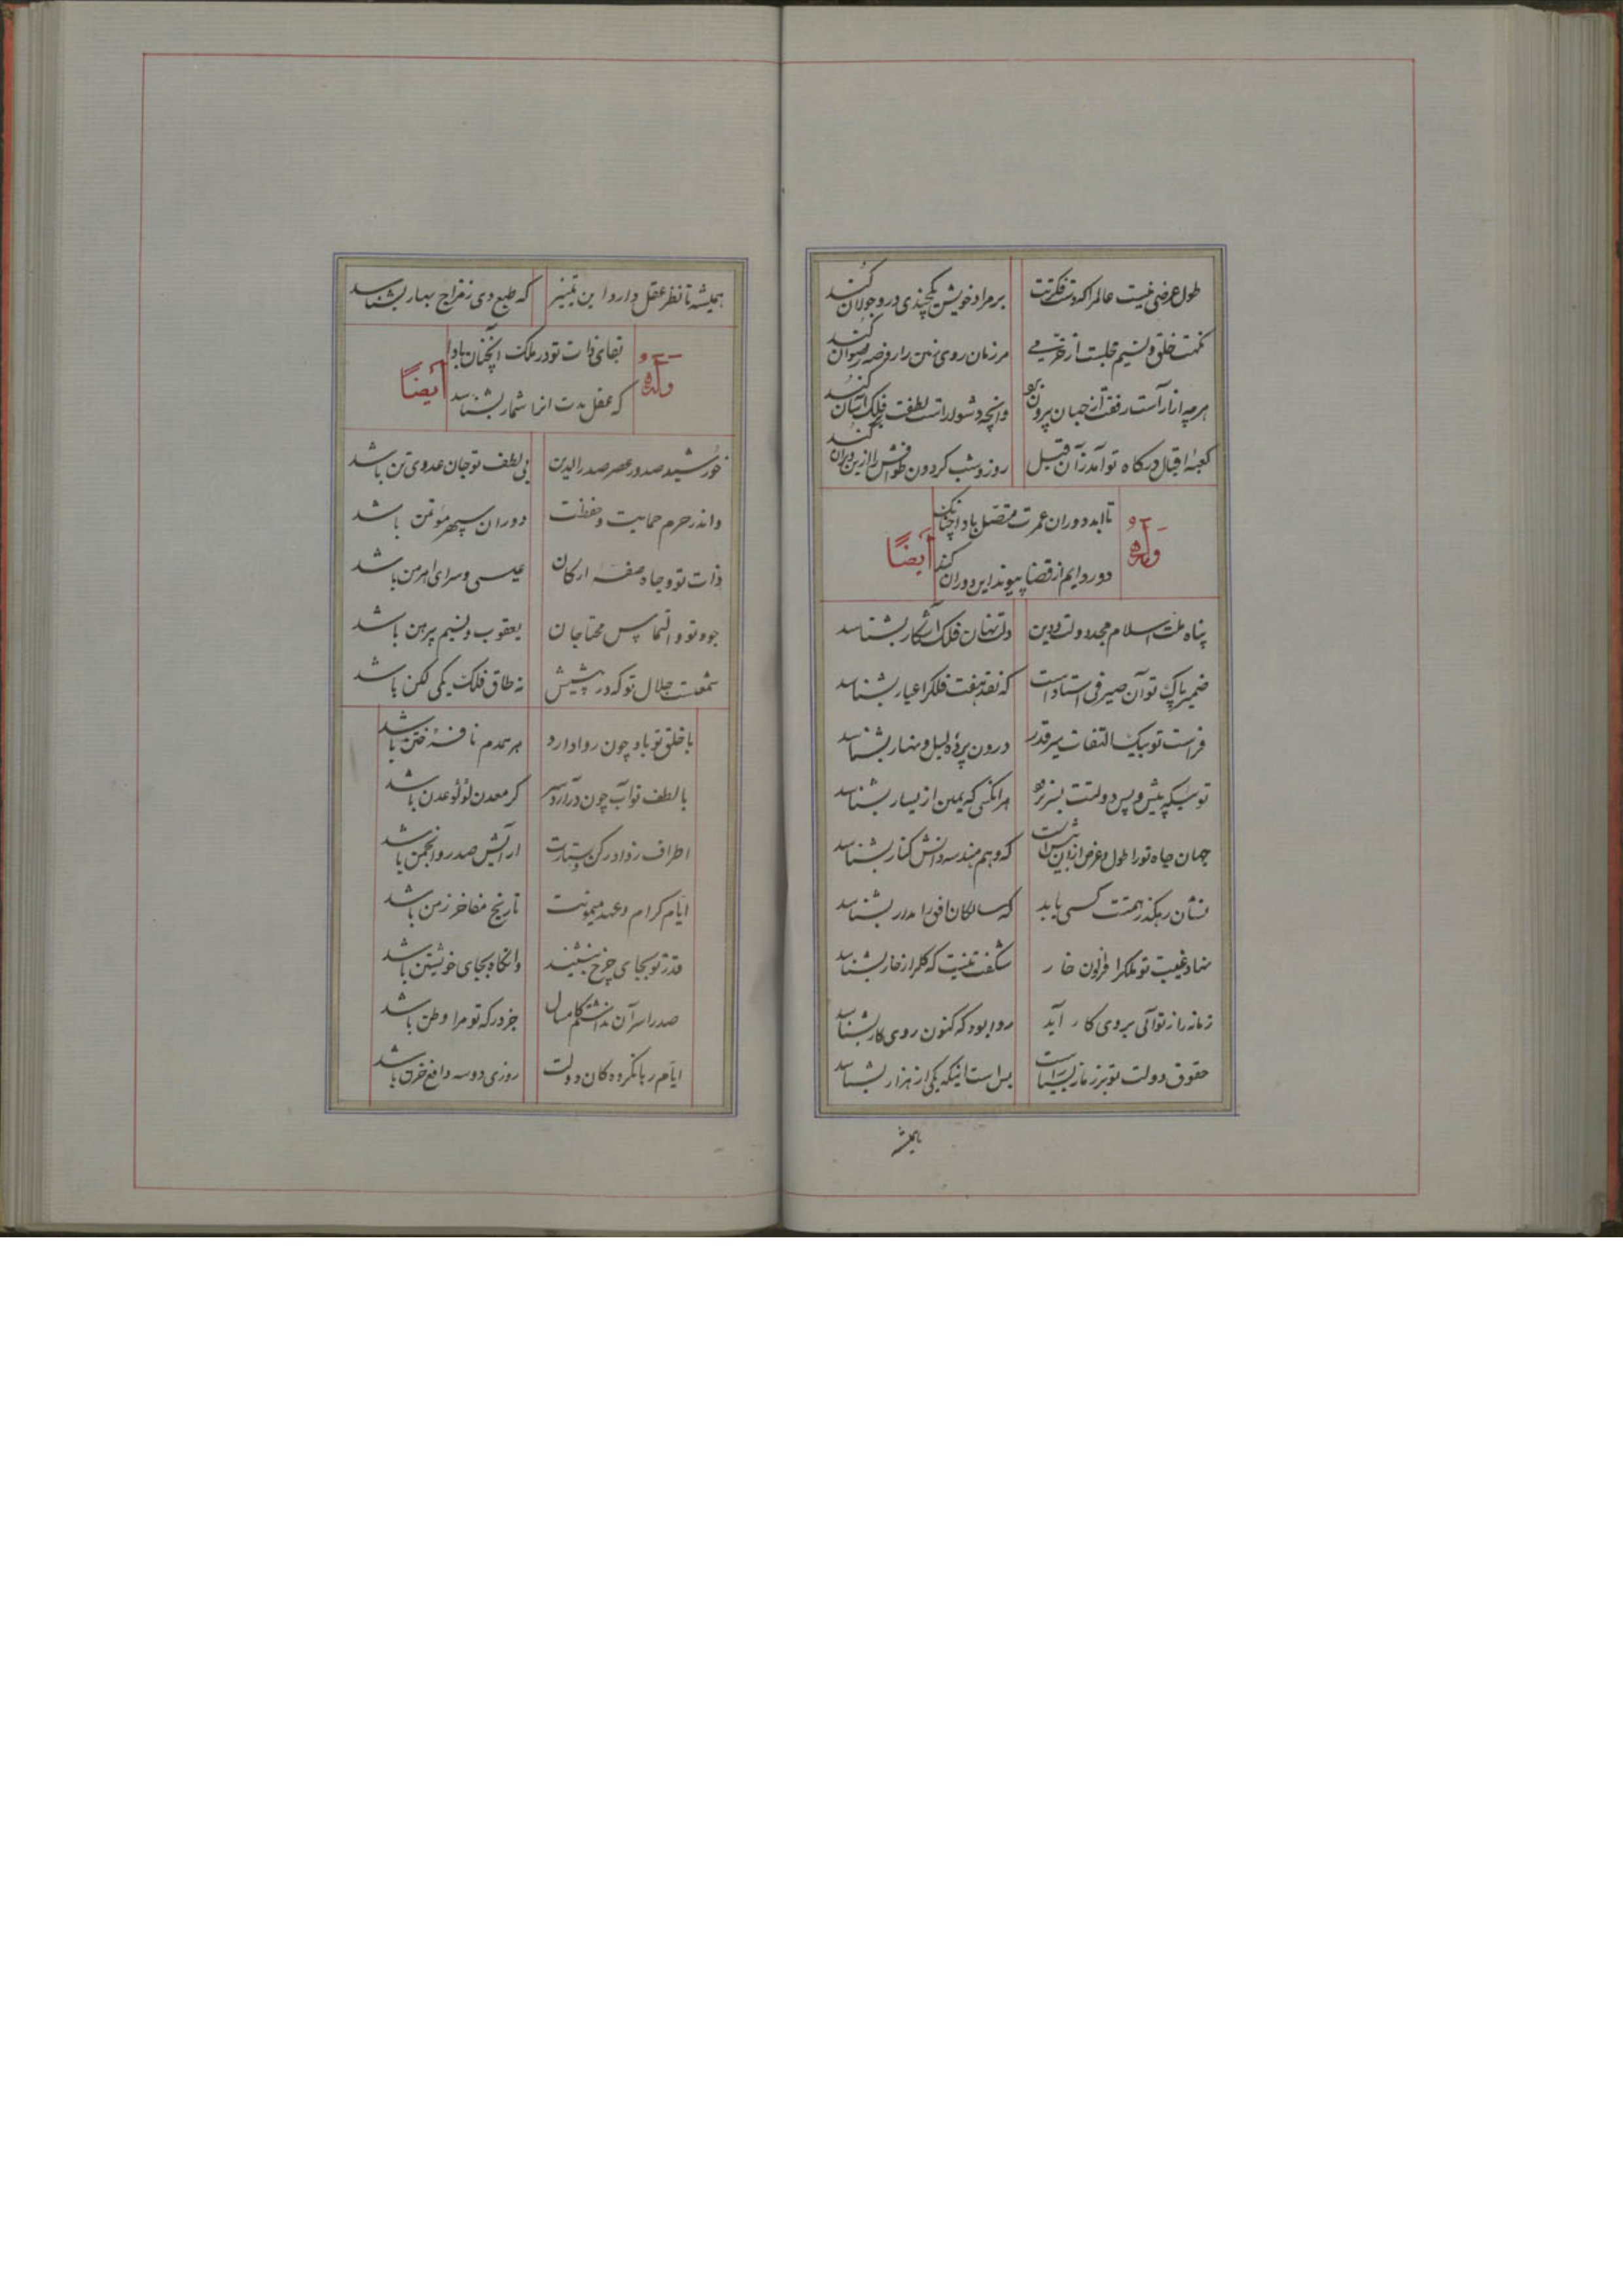 طول عرضی نیست عالم را که وقت فکرتت بر مراد خویش یکچندی درو جولان کند
نکهت خلق و نسیم مجلست از خرمی هر زمان روی زمین را روضه رضوان کند
هرچه آزار است رفقت از جهان بیرون وانچه دشوار است لطفت بر فلک آسان کند
کعبهٔ اقبال درکاه تو آمد زآن قبیل روز و شب کردون طوافش را ازین دوران کند
تا ابد دوران عمرت متصل باد آچنانک
وله ایضاً
دور دایم از قضا پیوند این دوران کند
پناه ملت اسلام مجد دولت و دین دلت نهان فلک آشکار بشناسد
ضمیر پاک تو آن صیرفی استاد است که نقد هفت فلکرا عیار بشناسد
فراست تو بیک التفات سر قدر درون پردهٔ لیل و نهار بشناسد
توئیکه پیش و پس دولتت هر آنکسی که یمین از یسار بشناسد
جهان جاه تو را طول و عرض از آن بیش است که وهم هندسه دانش کنار بشناسد
نشان رهکذر همتت کسی یابد که سالکان افق را مدار بشناسد
نهاد غیبت تو ملکرا فزون خار شکفت نیست که کلرا ز خار بشناسد
زمانه را ز تو آبی بروی کار آید روا بود که کنون روی کار بشناسد
حقوق دولت تو بر زمانه بسیار است بس است اینکه یکی از هزار بشناسد
همیشه
همیشه تا نظر عقل دارد این تمییز که طبع دی ز مزاج بهار بشناسد
بقای ذات تو در ملک آنچنان بادا
وله ایضاً
که عقل مدت انرا شمار بشناسد
خورشید صدور عصر صدرالدین بی لطف تو جان عدوی تن باشد
واندر حرم حمایت و حفظت دوران سپهر مؤتمن باشد
ذات تو و جاه صفهٔ ارکان عیسی و سرای اهرمن باشد
جود تو و التماس محتاجان یعقوب و نسیم پیرهن باشد
شمعست جلال تو که در پیشش نه طاق فلک یکی لکن باشد
با خلق تو باد چون روا دارد همدم نافهٔ ختن باشد
با لطف تو آب چون درآرد سر کر معدن لؤلؤ عدن باشد
اطراف ردا و رکن دستارت ارایش صدر و انجمن باشد
ایام کرام و عهد میمونت تاریخ مفاخر زمن باشد
قدر تو بجای چرخ بنشیند وانکاه بجای خویشتن باشد
صدرا سر آن نداشتم کامسال جز درکه تو مرا وطن باشد
ایام رها نکرد کان دولت روزی دو سه دافع حزن باشد